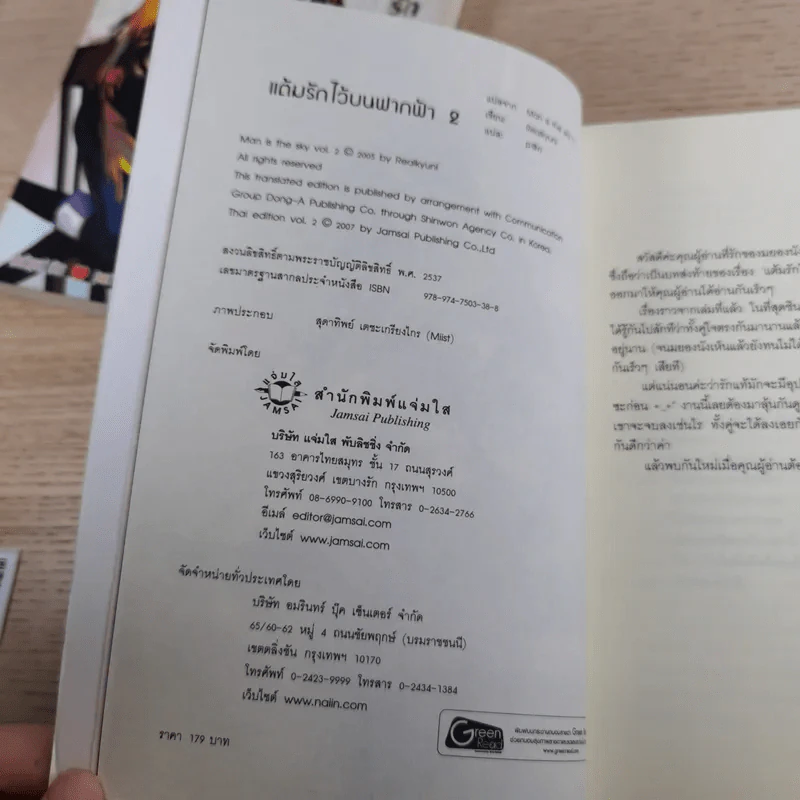 แต้มรักไว้บนฟากฟ้า 2
แปลจาก
เขียน Realkyuni
แปล
Man is the sky vol. 2 © 2005 by Realkyuni
All rights reserved
This translated edition is published by arrangement with Communication
Group Dong-A Publishing Co. through Shinwon Agency Co. in Korea.
Thai edition vol. 2 © 2007 by Jamsai Publishing Co.,Ltd
สงวนลิขสิทธิ์ตามพระราชบัญญัติลิขสิทธิ์ พ.ศ. 2537
เลขมาตรฐานสากลประจำหนังสือ ISBN 978-974-7503-38-8
ภาพประกอบ สุดาทิพย์ เตชะเกรียงไกร (Miist)
จัดพิมพ์โดย
แจ่มใส
JAMSAI
สำนักพิมพ์แจ่มใส
Jamsai Publishing
บริษัท แจ่มใส พับลิชชิ่ง จำกัด
163 อาคารไทยสมุทร ชั้น 17 ถนนสุรวงศ์
แขวงสุริยวงศ์ เขตบางรัก กรุงเทพฯ 10500
โทรศัพท์ 08-6990-9100 โทรสาร 0-2634-2766
อีเมล์ editor@jamsai.com
เว็บไซต์ www.jamsai.com
จัดจำหน่ายทั่วประเทศโดย
บริษัท อมรินทร์ บุ๊ค เซ็นเตอร์ จำกัด
65/60-62 หมู่ 4 ถนนชัยพฤกษ์ (บรมราชชนนี)
เขตตลิ่งชัน กรุงเทพฯ 10170
โทรศัพท์ 0-2423-9999 โทรสาร 0-2434-1384
เว็บไซต์ www.naiin.com
ราคา 179 บาท
Green
Read
www.greenread.com
สวัสดีค่ะคุณผู้อ่านที่รักของมยองนัง
ซึ่งถือว่าเป็นบทส่งท้ายของเรื่อง แต้มรัก
ออกมาให้คุณผู้อ่านได้อ่านกันเร็วๆ
เรื่องราวจากเล่มที่แล้ว ในที่สุดซิน
ได้รู้กันไปสักทีว่าทั้งคู่ใจตรงกันมานานแล้ว
อยู่นาน (จนมยองนังเห็นแล้วยังทนไม่ได้
กันเร็วๆ เสียที)
แต่แน่นอนค่ะว่ารักแท้มักจะมีอุป
ซะก่อน =_=" งานนี้เลยต้องมาลุ้นกันดู
เขาจะจบลงเช่นไร ทั้งคู่จะได้ลงเอยกั
กันดีกว่าค่า
แล้วพบกันใหม่เมื่อคุณผู้อ่านต้อ